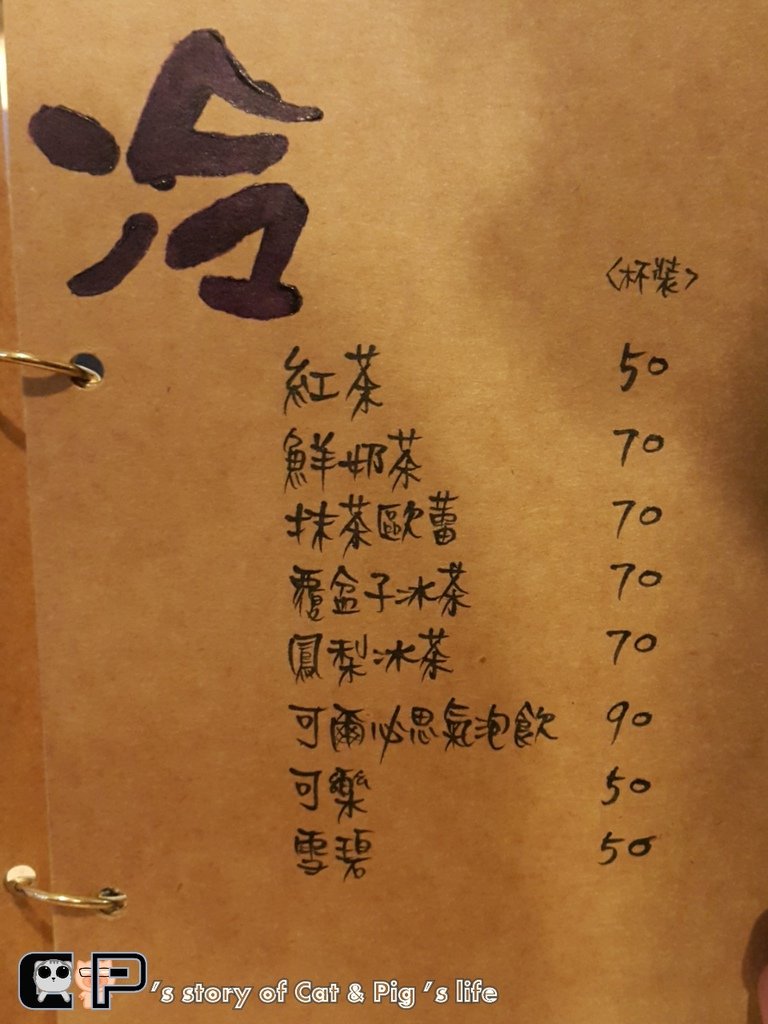 冷
<杯裝>
紅茶 50
鮮奶茶 70
抹茶歐蕾 70
覆盆子冰茶 70
鳳梨冰茶 70
可爾必思氣泡飲 90
可樂 50
雪碧 50
CP's story of Cat & Pig's life